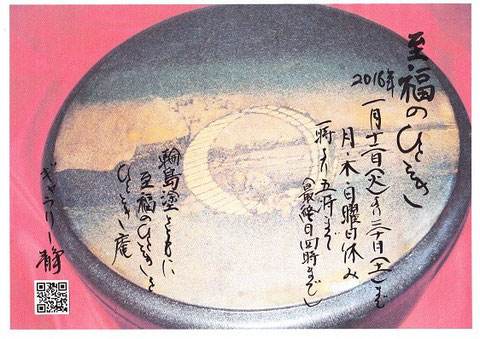 至福のひととき
2016年
一月十二日(火)より三十日(土)まで
月・木・日曜日休み
一時より五時まで
(最終日四時まで)
輪島塗とともに
至福のひとときを
ひととき庵
ギャラリー静